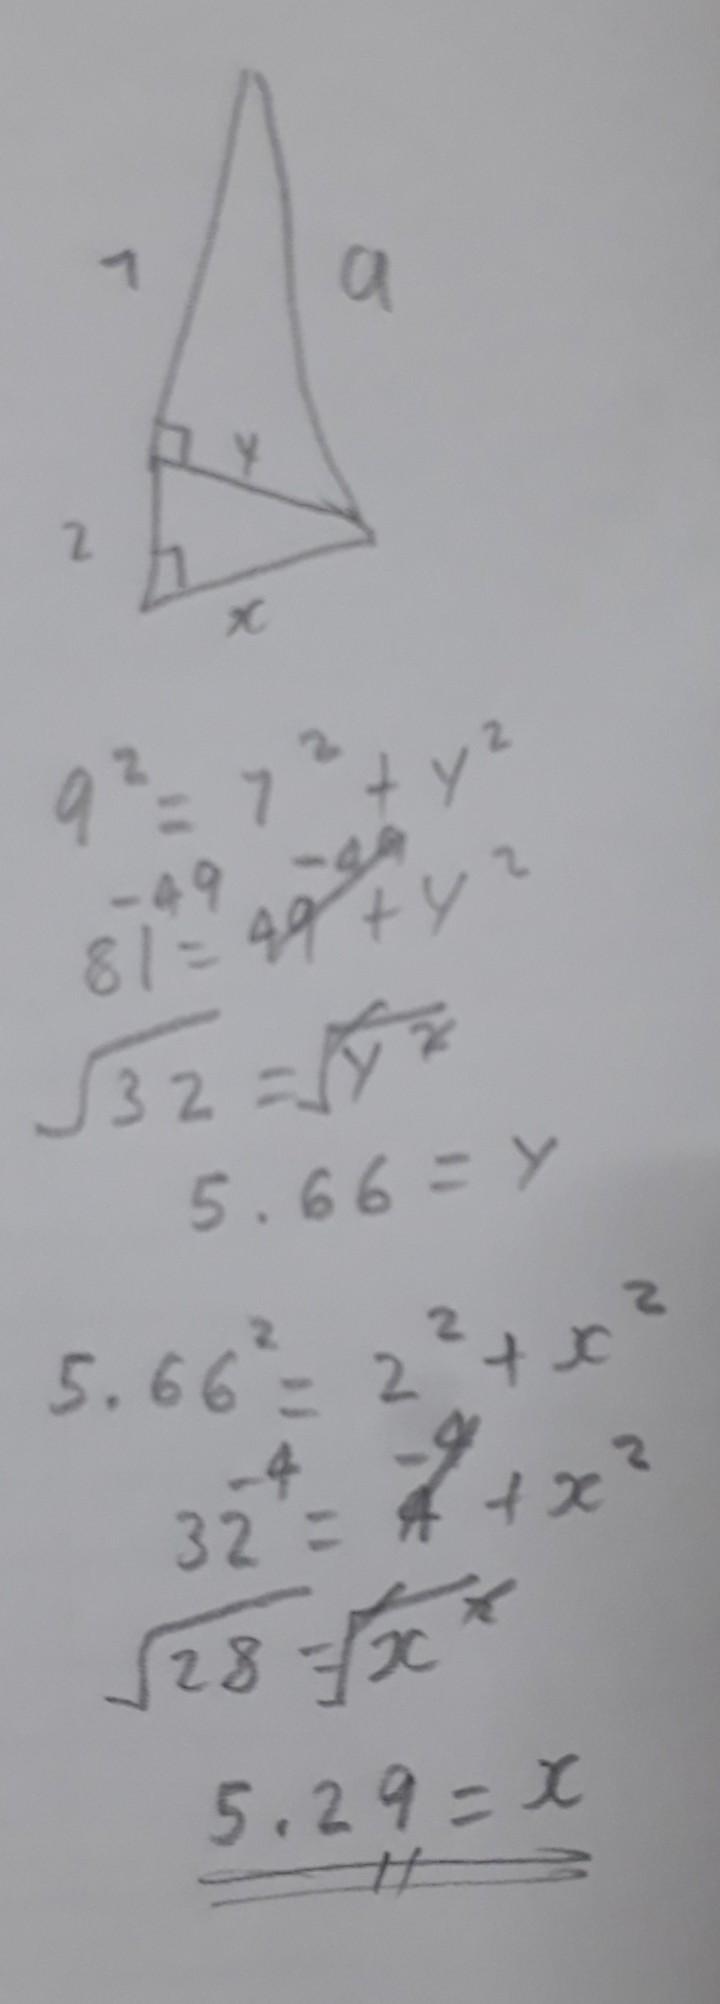 7
9
y
2
x
9² = 7² + y²
81⁻⁴⁹ = 49⁻⁴⁹ + y²
√32 = √y²
5.66 = y
5.66² = 2² + x²
32⁻⁴ = 4⁻⁴ + x²
√28 = √x²
5.29 = x